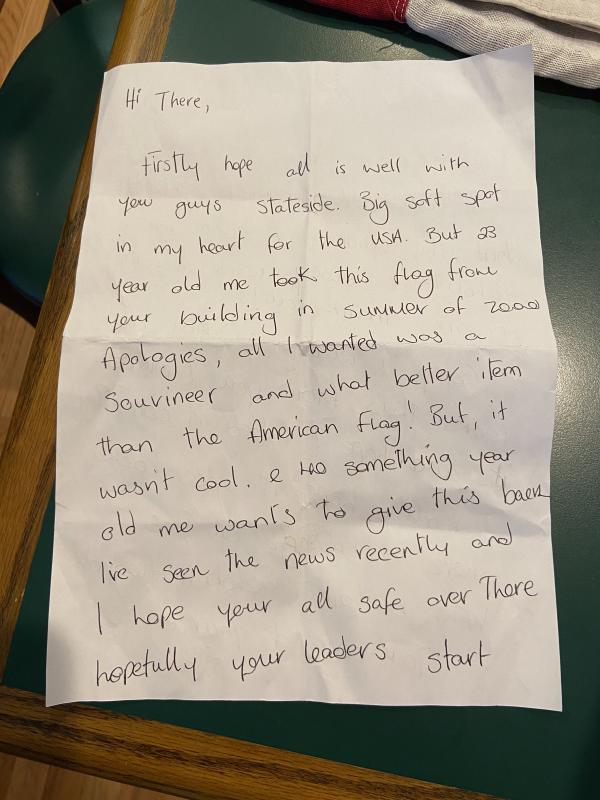 Hi There,
Firstly hope all is well with
you guys stateside. Big soft spot
in my heart for the USA. But 23
year old me took this flag from
your building in summer of 2000
Apologies, all I wanted was a
Souvineer and what better item
than the American flag! But, it
wasn't cool. & 40 something year
old me wants to give this back
I've seen the news recently and
I hope your all safe over There
hopefully your leaders start